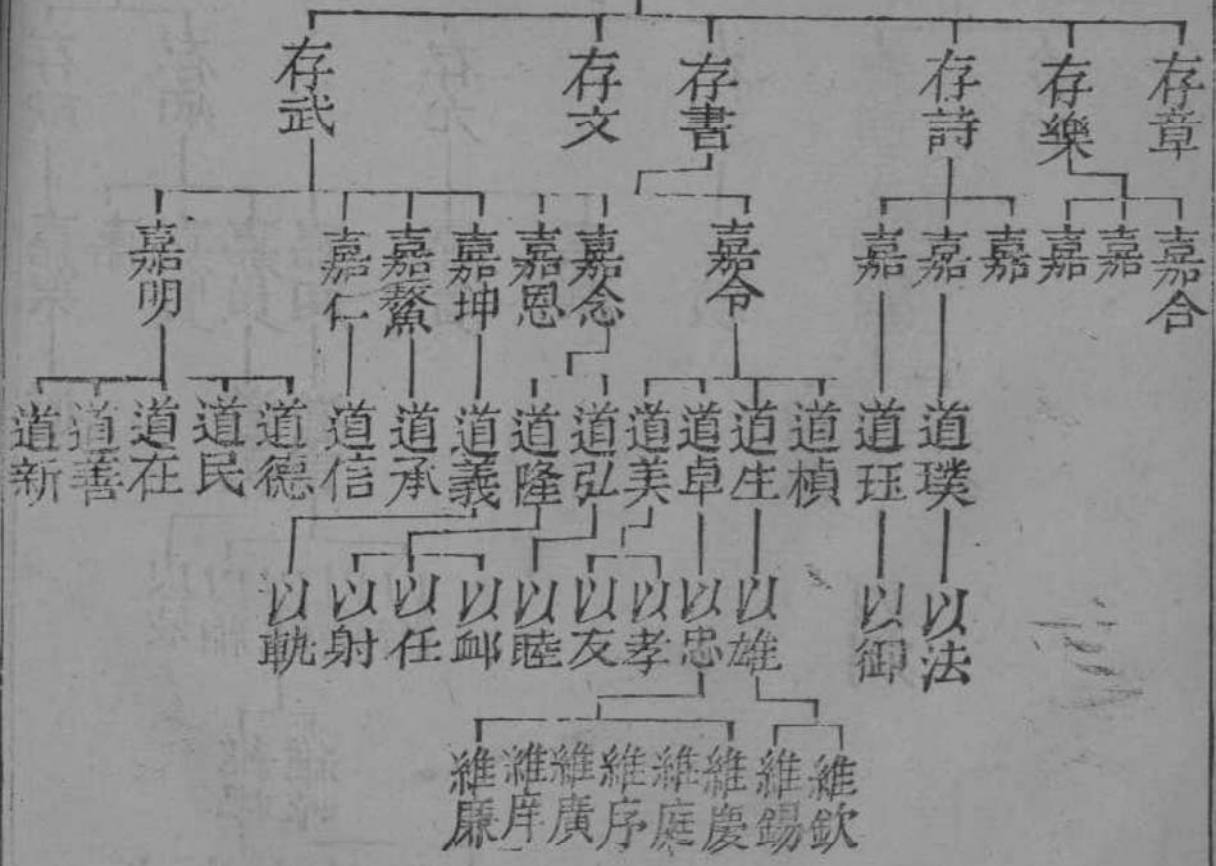 存章 存樂 存詩 存書 存文 存武
嘉合 嘉 嘉 嘉 嘉 嘉 嘉令 嘉念 嘉恩 嘉坤 嘉鰲 嘉仁 嘉明
道璞 道珏 道楨 道生 道卓 道美 道弘 道隆 道義 道承 道信 道德 道民 道在 道善 道新
以法 以御 以雄 以忠 以孝 以友 以睦 以䘏 以任 以射 以軌
維欽 維錫 維慶 維庭 維序 維廣 維庠 維廉